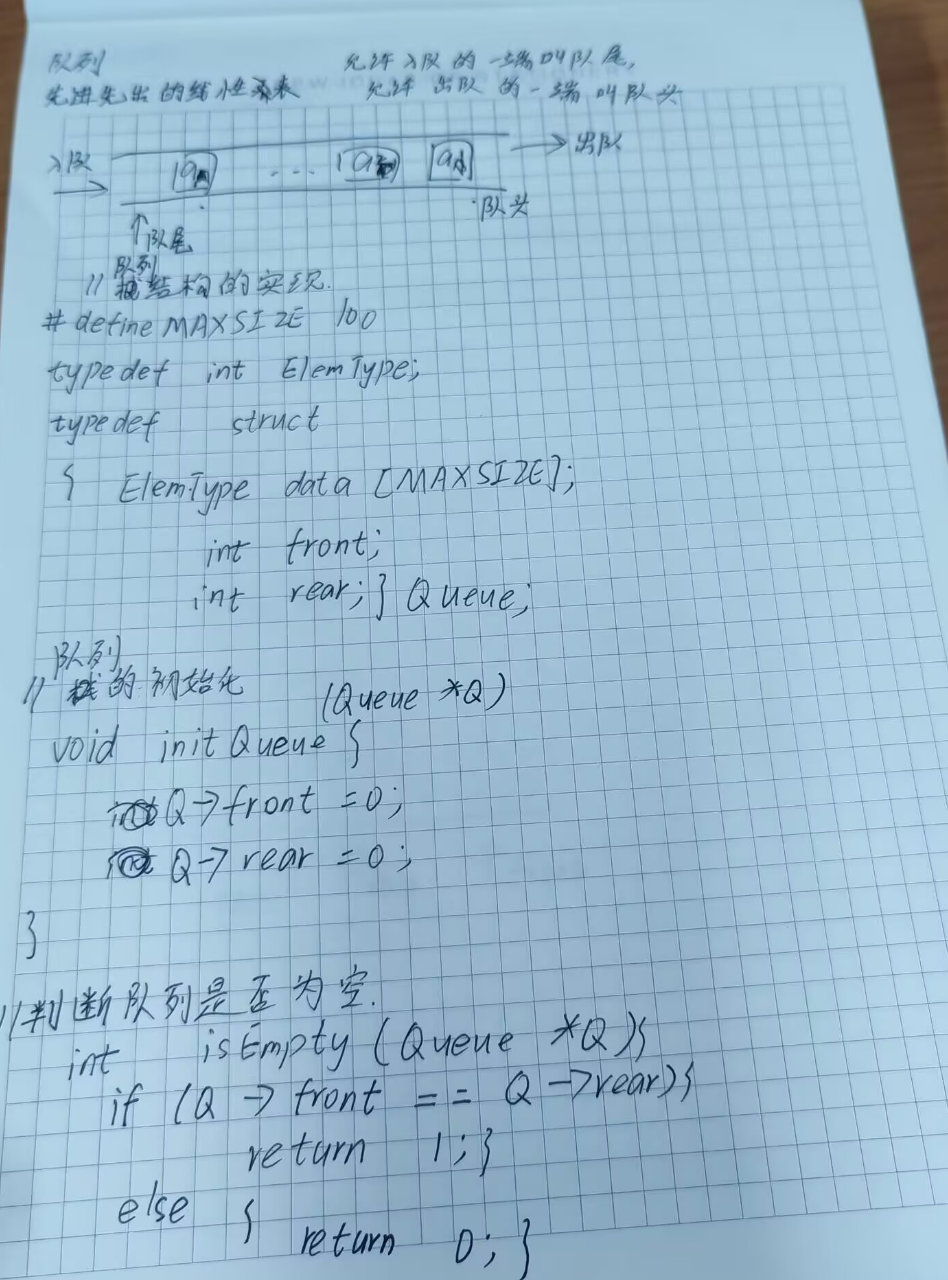 队列 允许入队的一端叫队尾,
先进先出的线性表 允许出队的一端叫队头
入队 → aₙ ... a₂ a₁ → 出队
↑队尾 队头
队列
// 结构的实现.
# define MAXSIZE 100
typedef int ElemType;
typedef struct
{ ElemType data [MAXSIZE];
int front;
int rear; } Queue;
队列
// 的初始化
(Queue *Q)
void initQueue {
Q->front = 0;
Q->rear = 0;
}
//判断队列是否为空.
int isEmpty (Queue *Q){
if (Q -> front == Q ->rear){
return 1;}
else {
return 0; }